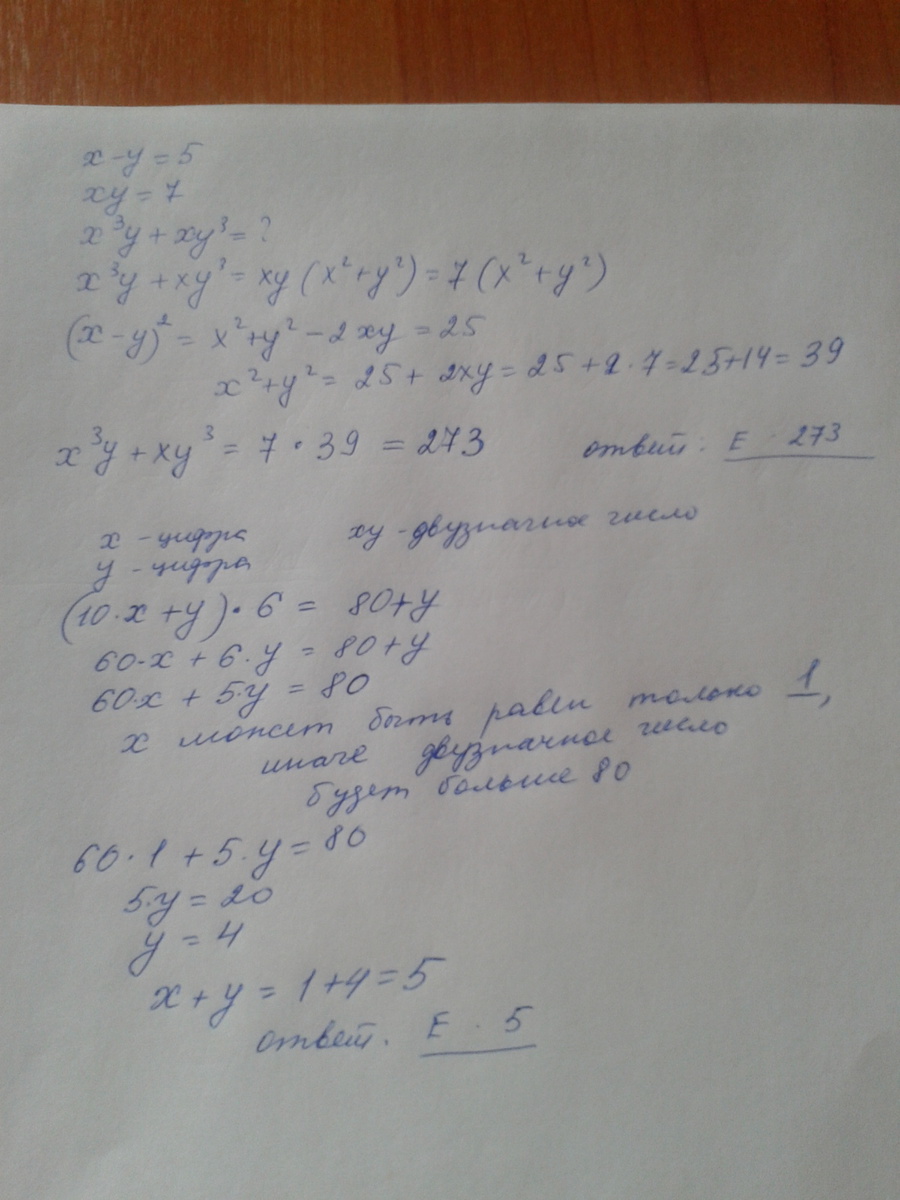 x - y = 5
xy = 7
x³y + xy³ = ?
x³y + xy³ = xy (x² + y²) = 7 (x² + y²)
(x - y)² = x² + y² - 2xy = 25
x² + y² = 25 + 2xy = 25 + 2 · 7 = 25 + 14 = 39
x³y + xy³ = 7 · 39 = 273 ответ: E · 273
x - цифра xy - двузначное число
y - цифра
(10·x + y) · 6 = 80 + y
60·x + 6·y = 80 + y
60·x + 5·y = 80
x может быть равен только 1,
иначе двузначное число
будет больше 80
60 · 1 + 5·y = 80
5·y = 20
y = 4
x + y = 1 + 4 = 5
ответ. E · 5